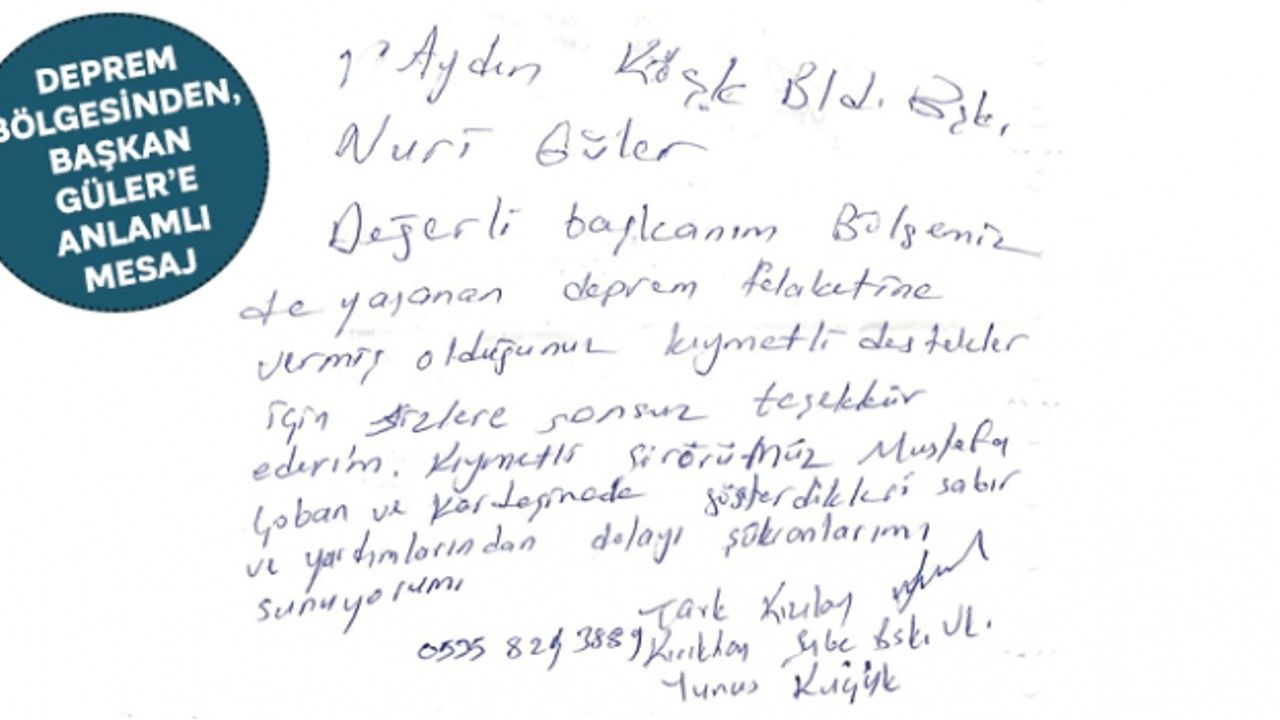 DEPREM
BÖLGESİNDEN,
BAŞKAN
GÜLER'E
ANLAMLI
MESAJ
Aydın Köşk Bld. Bşk.
Nuri Güler
Değerli başkanım Bölgemiz
de yaşanan deprem felaketine
vermiş olduğunuz kıymetli destekler
için sizlere sonsuz teşekkür
ederim. Kıymetli şöförümüz Mustafa
Çoban ve Kardeşinede gösterdikleri sabır
ve yardımlarından dolayı şükranlarımı
sunuyorum
Türk Kızılay
0535 824 3889 Kırıkhan Şube Bşk. Vk.
Yunus Küçük